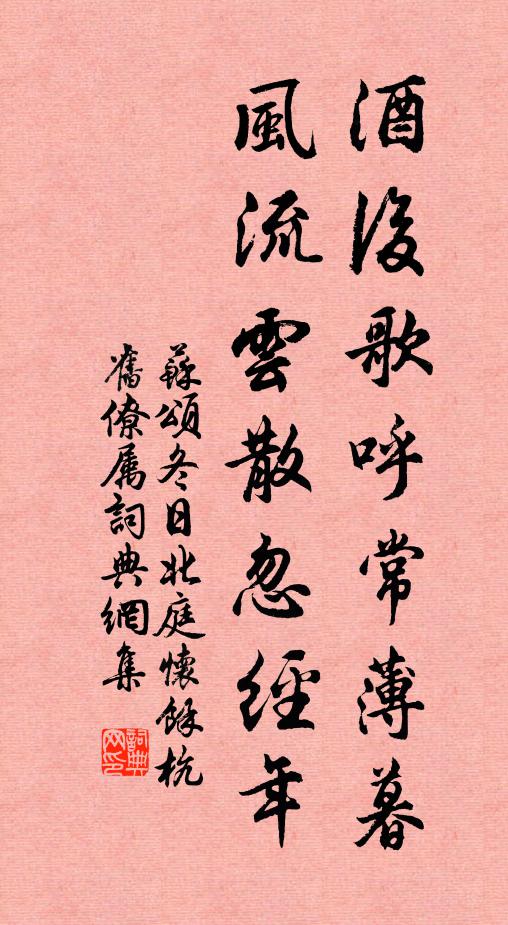 酒後歌呼常薄暮
風流雲散忽經年
蘇頌冬日北庭懷餘杭
舊僚屬詞典網集
詞典網印